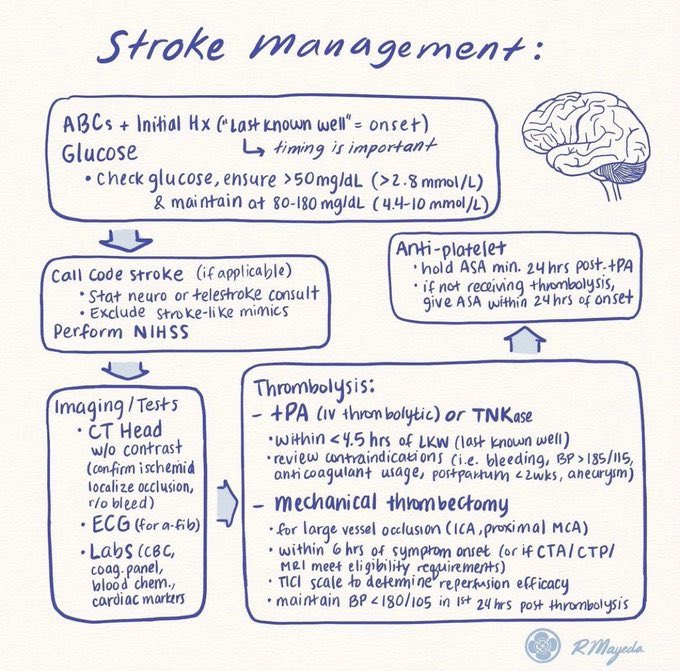 Stroke management:
ABCs + Initial Hx ("Last known well" = onset)
↳ timing is important
Glucose
• Check glucose, ensure >50mg/dL (>2.8 mmol/L)
& maintain at 80-180 mg/dL (4.4-10 mmol/L)
Call code stroke (if applicable)
• Stat neuro or telestroke consult
• Exclude stroke-like mimics
Perform NIHSS
Imaging/Tests
• CT Head
w/o contrast
(confirm ischemid
localize occlusion,
r/o bleed)
• ECG (for a-fib)
• Labs (CBC,
coag. panel,
blood chem.,
cardiac markers
Thrombolysis:
- tPA (IV thrombolytic) or TNKase
• within <4.5 hrs of LKW (last known well)
• review contraindications (i.e. bleeding, BP>185/115,
anticoagulant usage, postpartum <2wks, aneurysm)
- mechanical thrombectomy
• for large vessel occlusion (ICA, proximal MCA)
• within 6 hrs of symptom onset (or if CTA/CTP/
MRI meet eligibility requirements)
• TICI scale to determine reperfusion efficacy
• maintain BP <180/105 in 1st 24 hrs post thrombolysis
Anti-platelet
• hold ASA min. 24 hrs post-tPA
• if not receiving thrombolysis,
give ASA within 24 hrs of onset
R Mayeda